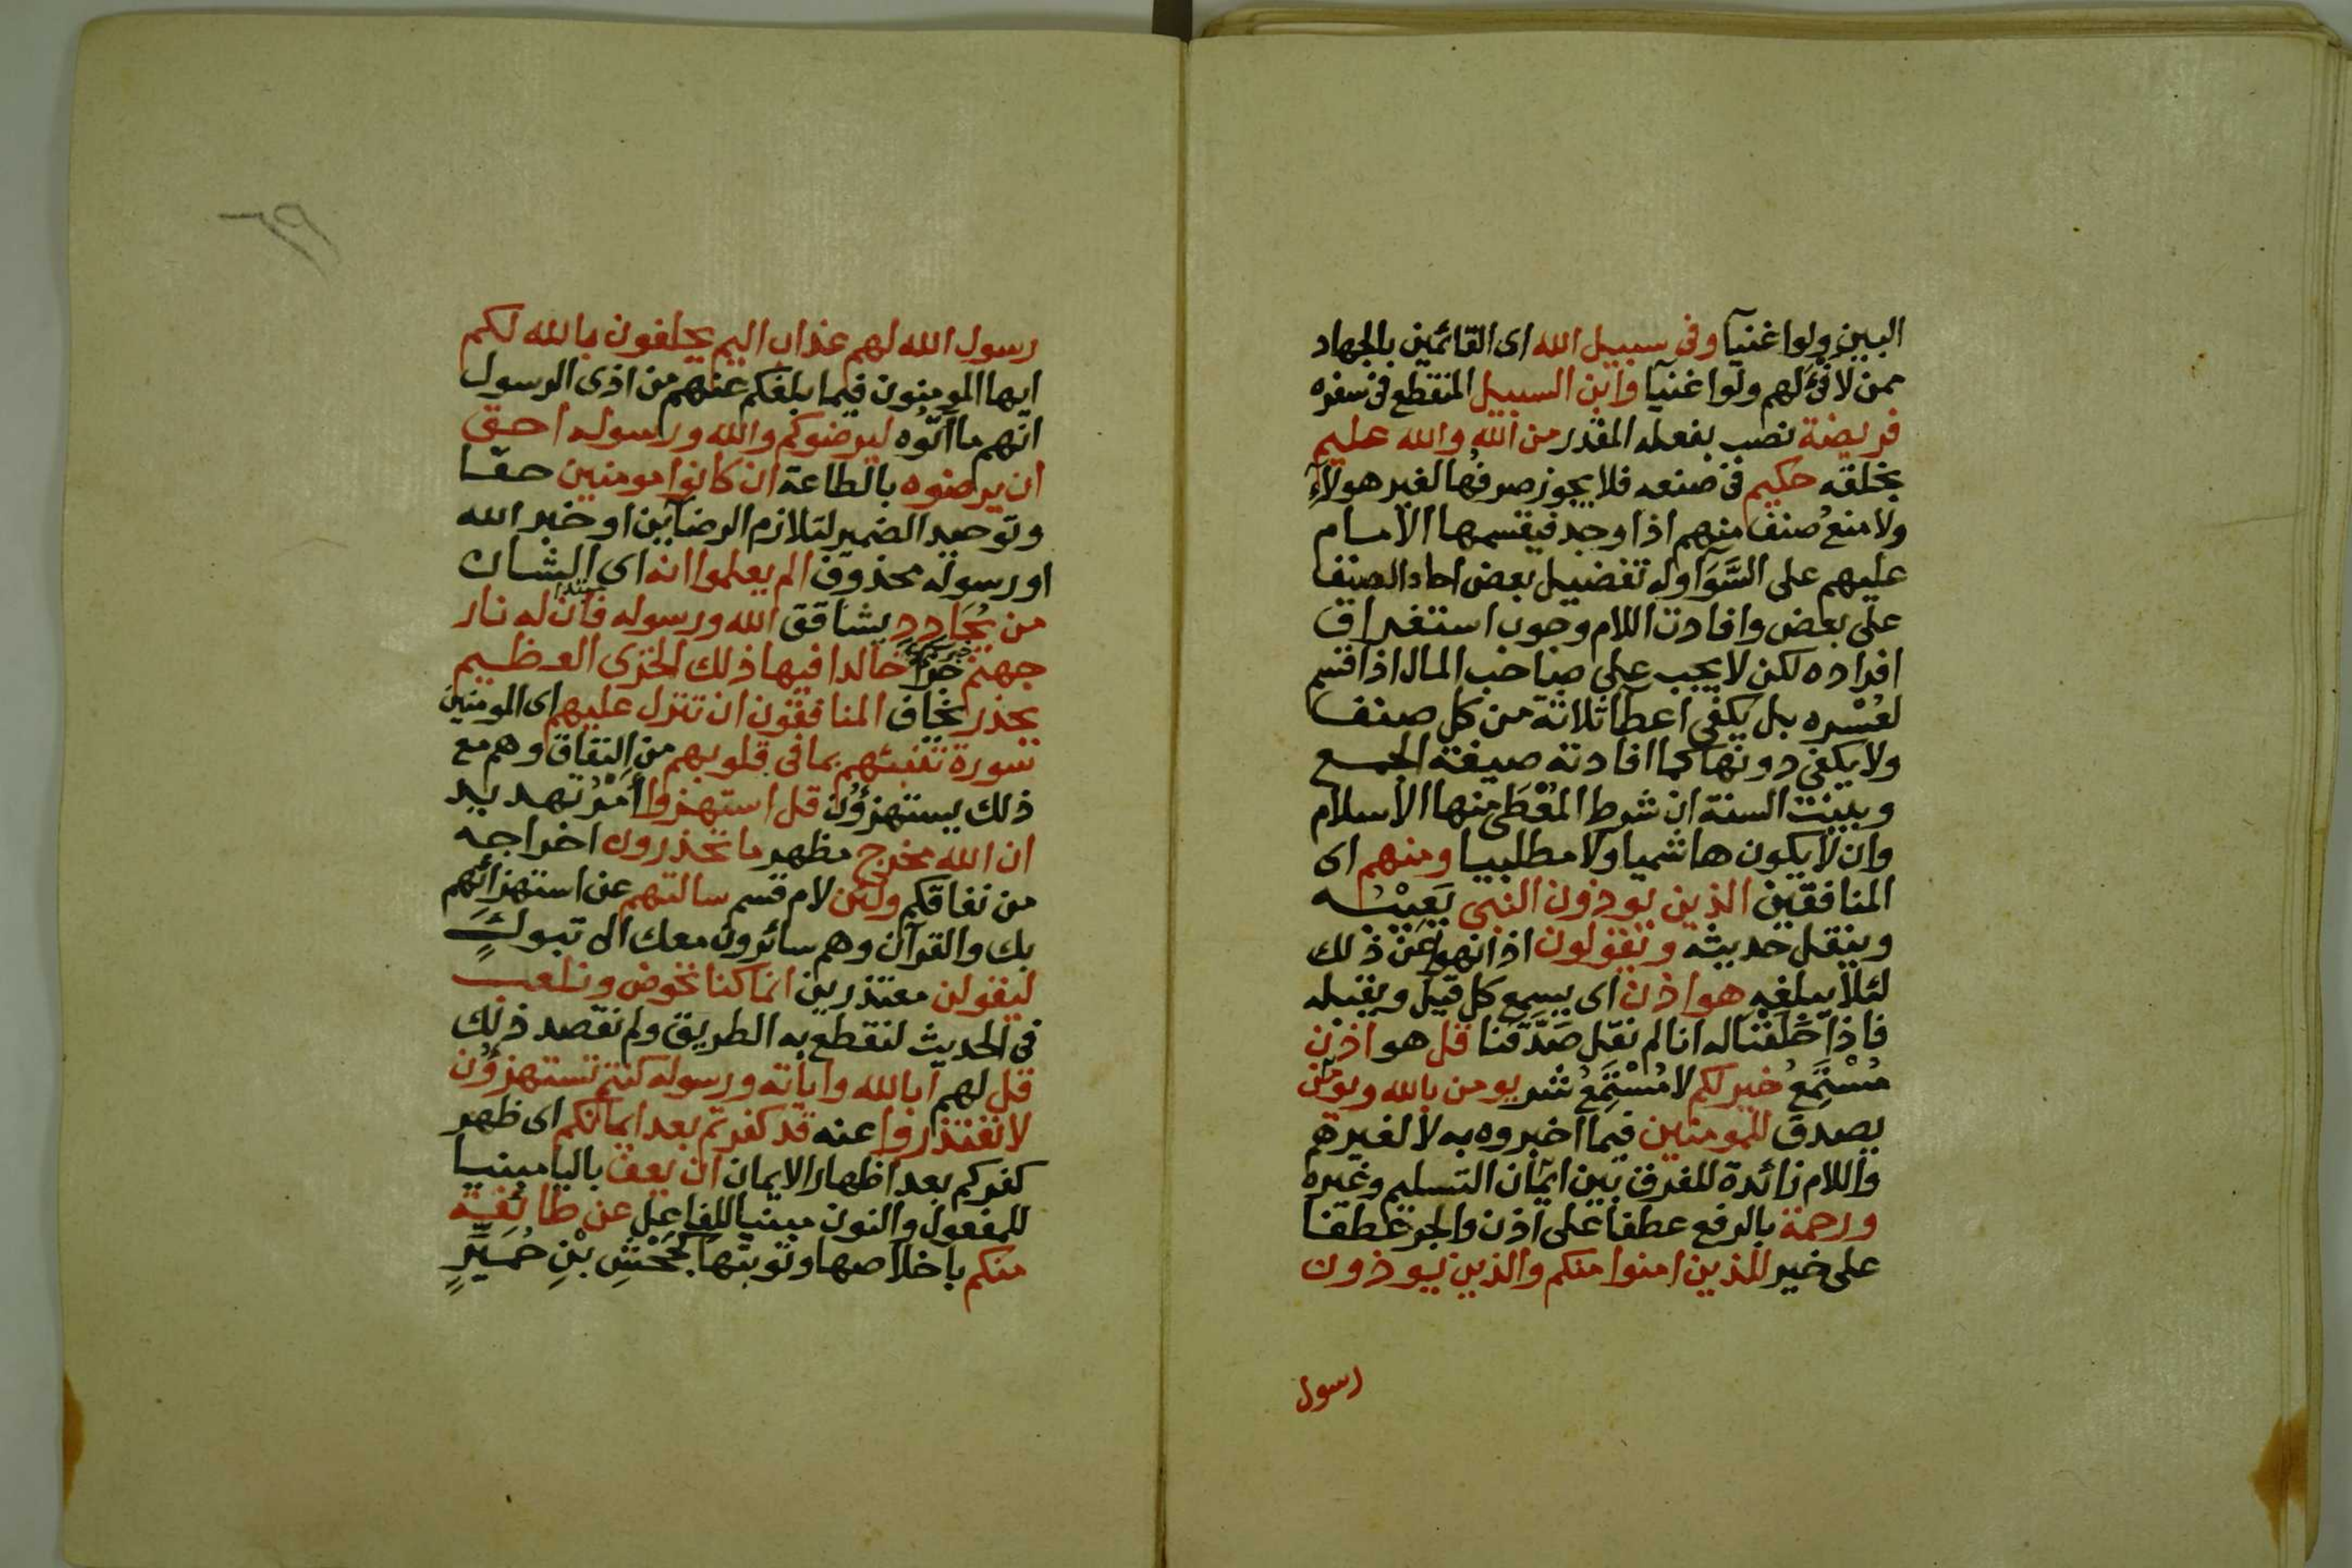 البين ولو اغنيآ وفى سبيل الله اى القائمين بالجهاد
ممن لا فئ لهم ولو اغنيآ وابن السبيل المنقطع فى سفره
فريضة نصب بفعله المقدر من الله والله عليم
بخلقه حكيم فى صنعه فلا يجوز صرفها لغير هولاء
ولا منع صنف منهم اذا وجد فيقسمها الامام
عليهم على السَّوَا وله تفضيل بعض احاد الصنف
على بعض وافادت اللام وجوب استغراق
افراده لكن لا يجب على صاحب المال اذا قسم
لعسره بل يكفى اعطا ثلاثة من كل صنف
ولا يكفى دونها كما افادته صيغة الجمع
وبينت السنة ان شرط المُعْطَى منها الاسلام
وان لا يكون هاشميا ولا مطلبيا ومنهم اى
المنافقين الذين يوذون النبى بِعَيْبِه
وبنقل حديثه ويقولون اذا نهوا عن ذلك
لئلا يبلغه هو اذن اى يسمع كل قيل ويقبله
فاذا حَلَفْنَا له انا لم نقل صَدَّقنا قل هو اذن
مُسْتَمِعُ خير لكم لا مُسْتَمِعُ شر يومن بالله ويومن
يصدق للمومنين فيما اخبروه به لا لغيرهم
واللام زائدة للفرق بين ايمان التسليم وغيره
ورحمة بالرفع عطفا على اذن والجر عطفا
على خير للذين امنوا منكم والذين يوذون
رسول
رسول الله لهم عذاب اليم يحلفون بالله لكم
ايها المومنون فيما بلغكم عنهم من اذى الرسول
انهم ما اتوه ليرضوكم والله ورسوله احق
ان يرضوه بالطاعة ان كانوا مومنين حقا
وتوحيد الضمير لتلازم الرضائين او خبر الله
او رسوله محذوف الم يعلموا انه اى الشان
من يُحَادِدِ يشاقق الله ورسوله فان له نار
جهنم جزاء خالدا فيها ذلك الخزى العظيم
يحذر يخاف المنافقون ان تنزل عليهم اى المومنين
سورة تنبئهم بما فى قلوبهم من النفاق وهم مع
ذلك يستهزؤن قل استهزوا اَمْرُ تهديد
ان الله مخرج مظهر ما تحذرون اخراجه
من نفاقكم ولئن لام قسم سالتهم عن استهزائهم
بك والقرآن وهم سائرون معك الى تبوك
ليقولن معتذرين انما كنا نخوض ونلعب
فى الحديث لنقطع به الطريق ولم نقصد ذلك
قل لهم ابالله واياته ورسوله كنتم تستهزؤن
لا تعتذروا عنه قد كفرتم بعد ايمانكم اى ظهر
كفركم بعد اظهار الايمان ان يعف باليا مبنيا
للمفعول والنون مبنيا للفاعل عن طائفة
منكم باخلاصها وتوبتها كجَحْشِ بْنِ حُمَيِّرٍ